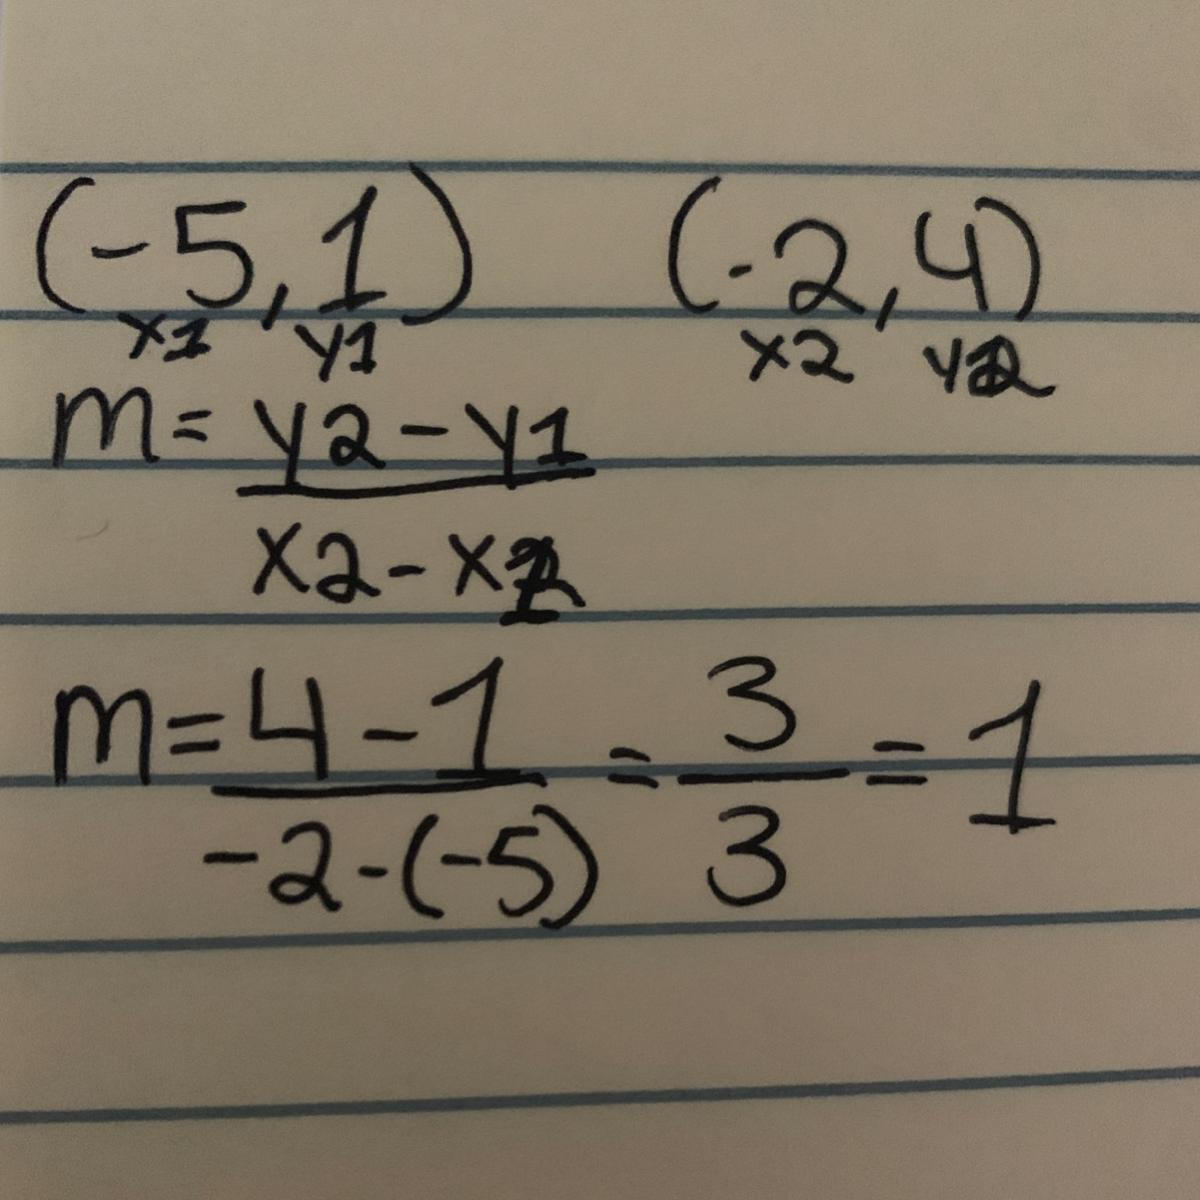 (-5, 1) (-2, 4)
x1 y1 x2 y2
m = y2 - y1
x2 - x1
m = 4 - 1 = 3 = 1
-2 - (-5) 3